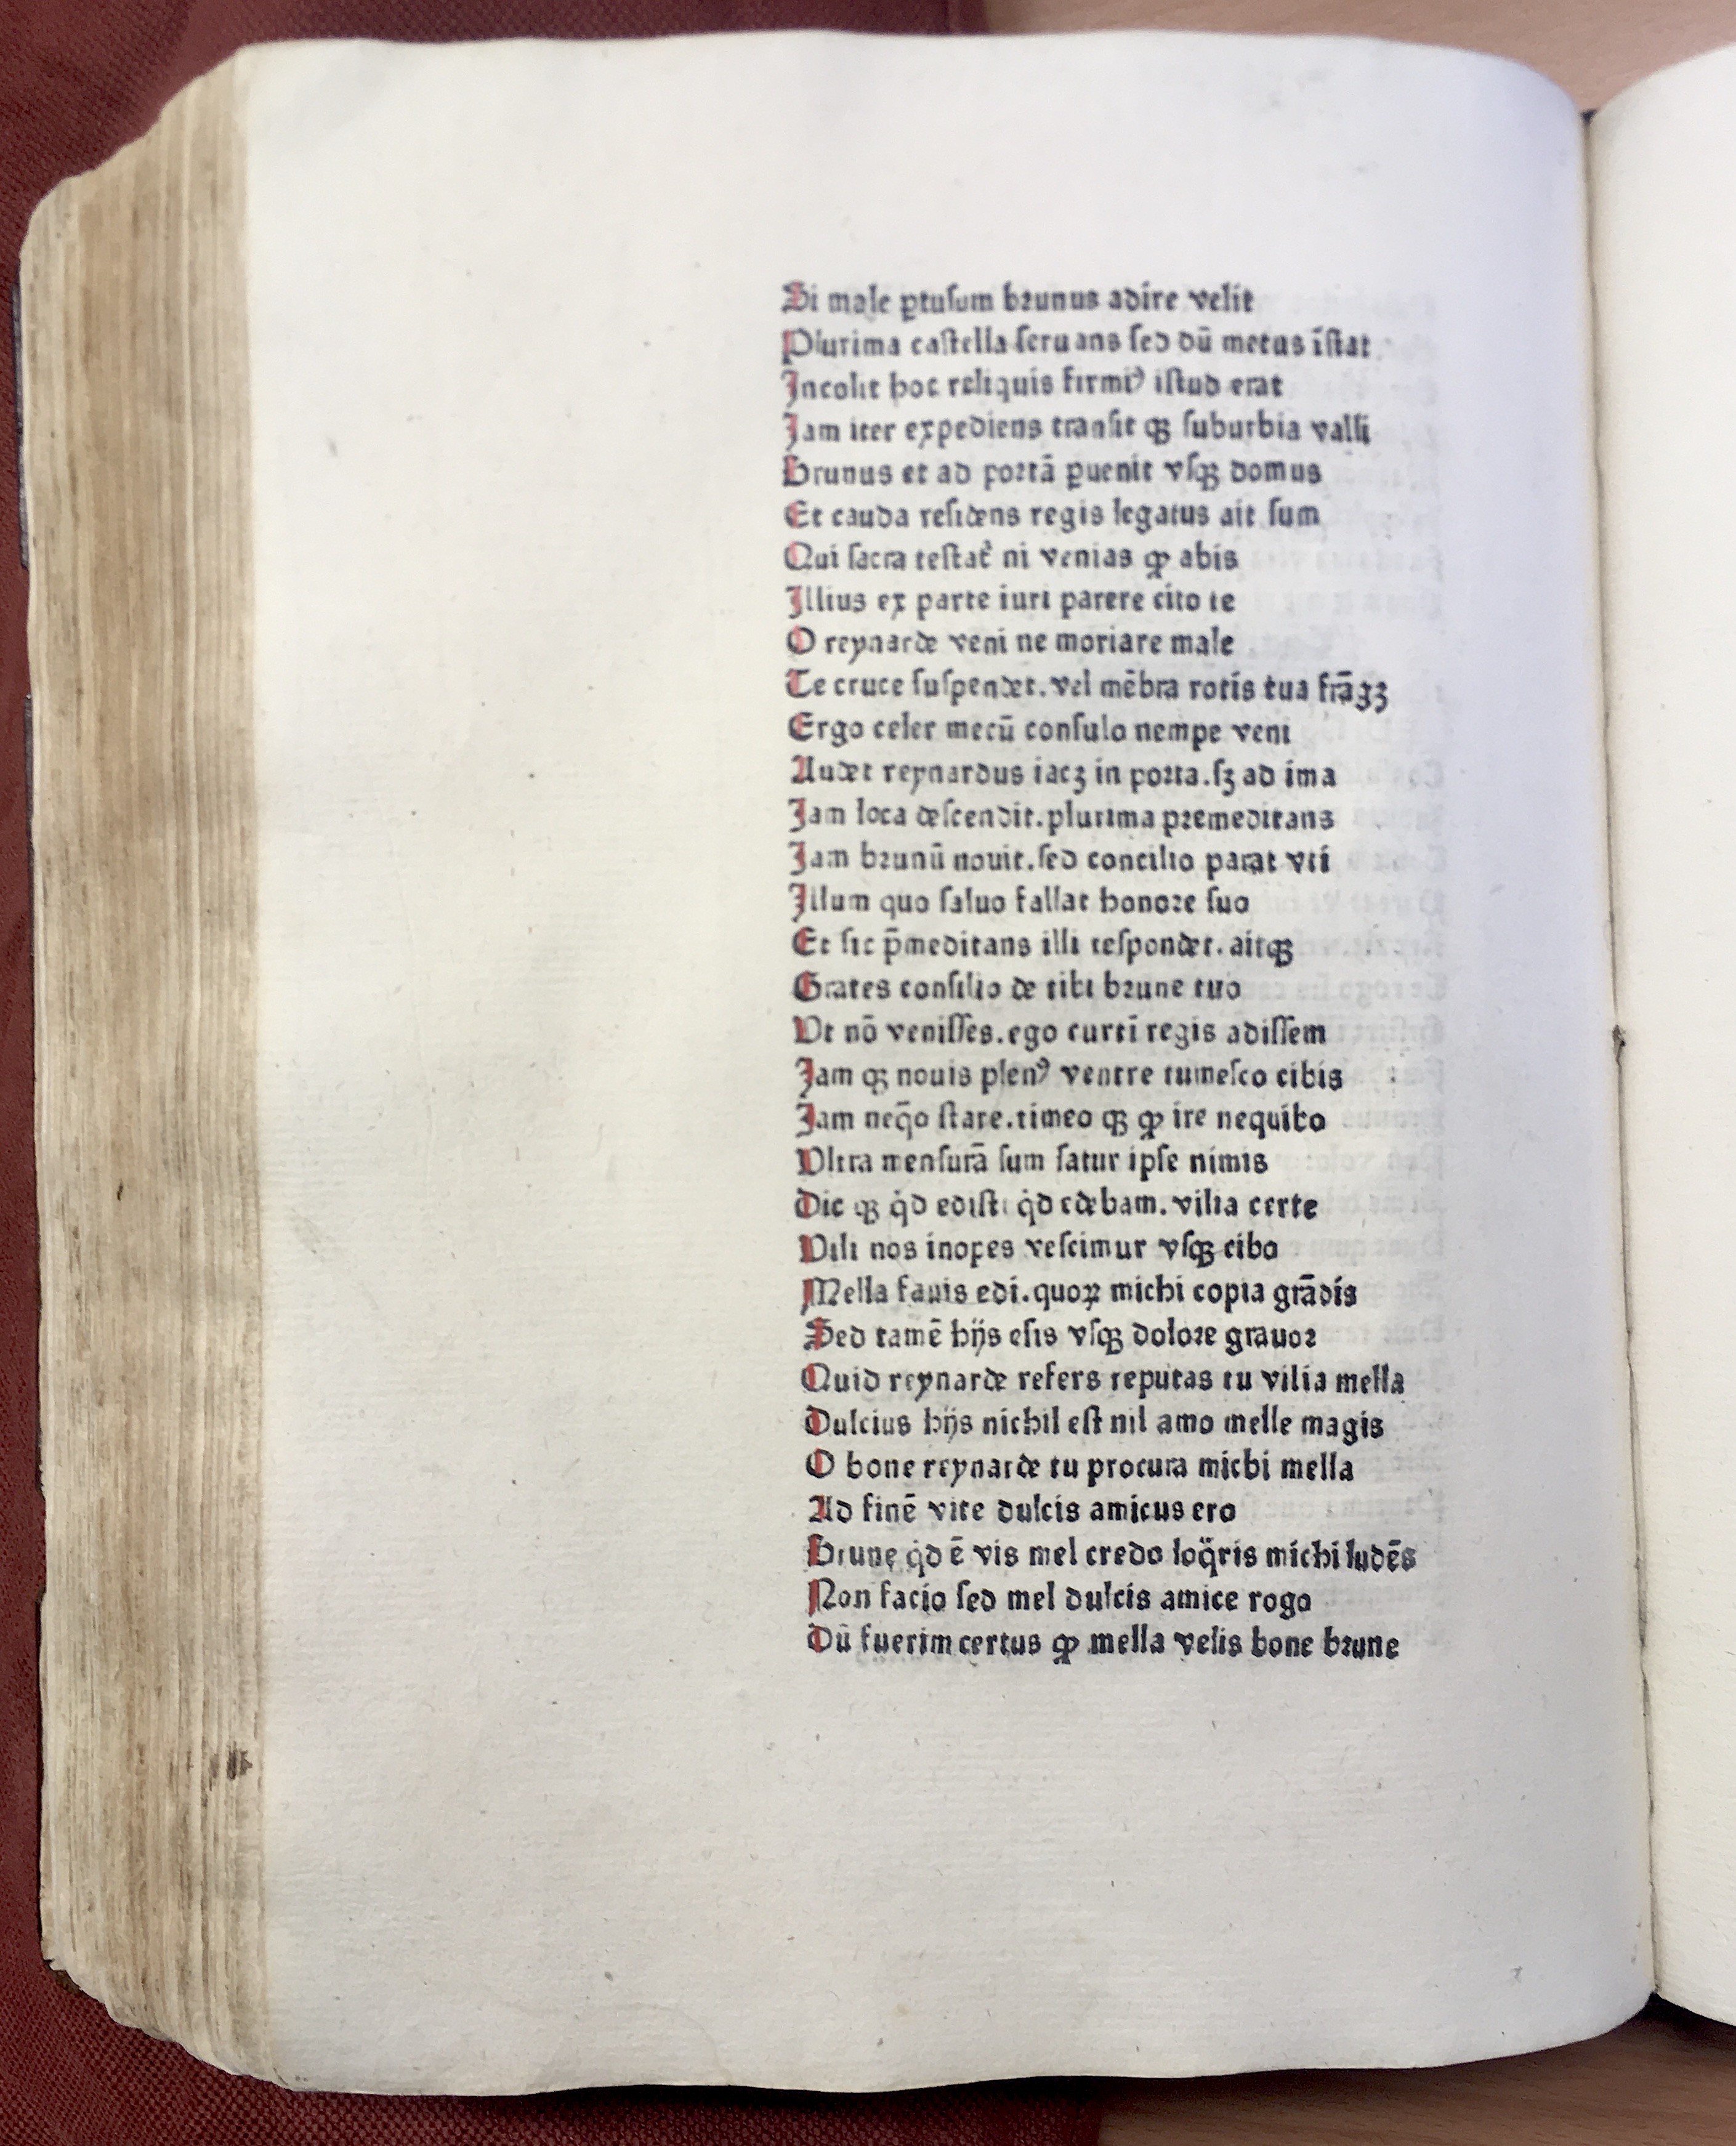 Si male ꝑtusum brunus adire velit
Plurima castella seruans sed dū metus īstat
Incolit hoc reliquis firmiꝰ istud erat
Jam iter expediens transit qꝫ suburbia valli
Brunus et ad portā ꝑuenit vsqꝫ domus
Et cauda residens regis legatus ait sum
Qui sacra testat᷑ ni venias ꝙ abis
Illius ex parte iuri parere cito te
O reynarde veni ne moriare male
Te cruce suspendet. vel mēbra rotis tua frāgꝫ
Ergo celer mecū consulo nempe veni
Audet reynardus iacꝫ in porta. sꝫ ad ima
Jam loca descendit. plurima premeditans
Jam brunū nouit. sed concilio parat vti
Illum quo saluo fallat honore suo
Et sic p̄meditans illi respondet. aitqꝫ
Grates consilio de tibi brune tuo
Vt nō venisses. ego curtī regis adissem
Jam qꝫ nouis plenꝰ ventre tumesco cibis
Jam neq̄o stare. timeo qꝫ ꝙ ire nequibo
Vltra mensurā sum satur ipse nimis
Dic qꝫ qͥd edisti qͥd edebam. vilia certe
Vili nos inopes vescimur vsqꝫ cibo
Mella fauis edi. quoꝝ michi copia grādis
Sed tamē hijs esis vsqꝫ dolore grauor
Quid reynarde refers reputas tu vilia mella
Dulcius hijs nichil est nil amo melle magis
O bone reynarde tu procura michi mella
Ad finē vite dulcis amicus ero
Brune qͥd ē vis mel credo loq̈ris michi ludēs
Non facio sed mel dulcis amice rogo
Dū fuerim certus ꝙ mella velis bone brune